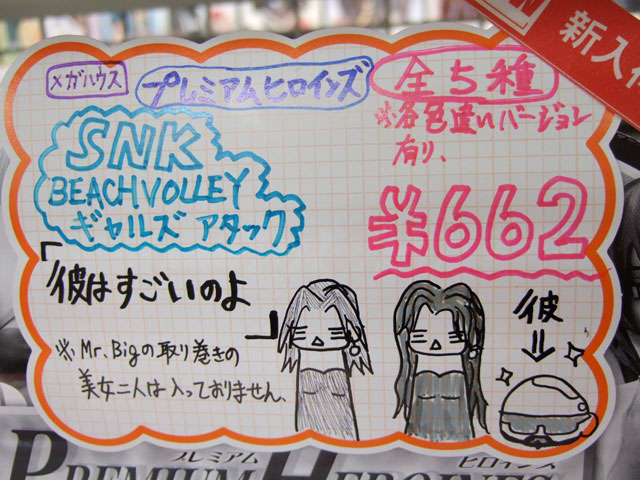 新入
メガハウス
プレミアムヒロインズ
全5種
※各色違いバージョン
有り、
SNK
BEACHVOLLEY
ギャルズアタック
¥662
「彼はすごいのよ」
彼
※Mr.Bigの取り巻きの
美女二人は入っておりません、
プレミアム ヒロインズ
PREMIUM HEROINES